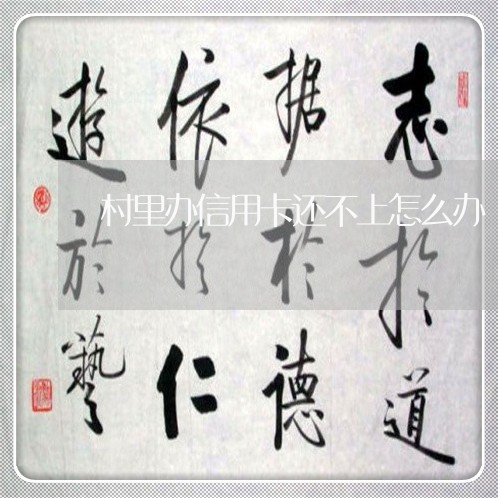 志於道
据於德
依於仁
遊於藝
村里办信用卡还不上怎么办